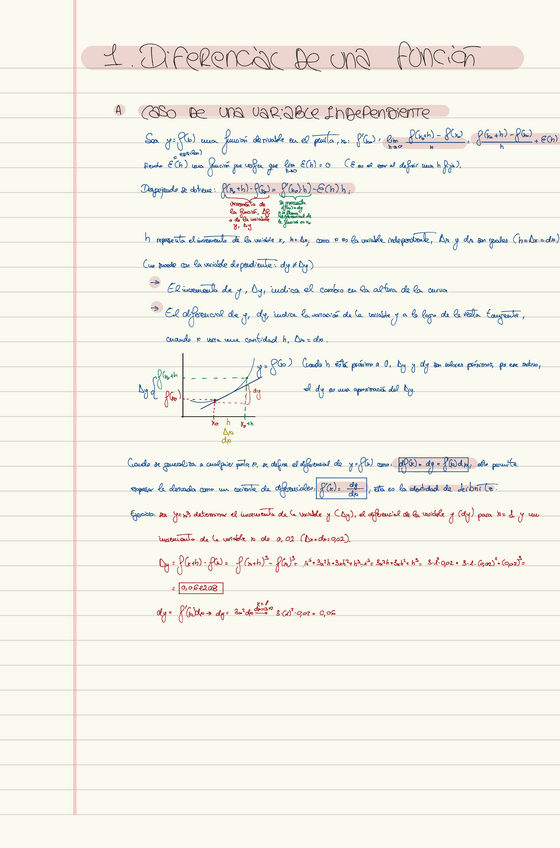 1. Diferencial de una función
A CASO DE UNA VARIABLE INDEPENDIENTE
Sea y=f(x) una función derivable en el punto, x₀: f'(x₀) = lim h→0 f(x₀+h) - f(x₀) / h = f(x₀+h) - f(x₀) / h + E(h)
siendo E(h) una función que verifica que lim h→0 E(h) = 0 (E es el error al definir una h fija).
Despejando se obtiene: f(x₀+h) - f(x₀) = f'(x₀) h - E(h) h,
incremento de la función, Δf o de la variable y, Δy
diferencial de la función en x₀
h representa el incremento de la variable x, h=Δx, como x es la variable independiente, Δx y dx son iguales (h=Δx=dx)
(no sucede con la variable dependiente: dy≠Δy)
→ El incremento de y, Δy, indica el cambio en la altura de la curva
→ El diferencial de y, dy, indica la variación de la variable y a lo largo de la recta tangente,
cuando x varía una cantidad h, Δx=dx.
y=f(x) Cuando h está próximo a 0, Δy y dy son valores próximos, por ese motivo,
el dy es una aproximación del Δy.
f(x₀+h)
Δy
f(x₀)
dy
x₀ h x₀+h
Δx
dx
Cuando se generaliza a cualquier punto x, se define el diferencial de y=f(x) como: df(x) = dy = f'(x)dx, ello permite
expresar la derivada como un cociente de diferenciales: f'(x) = dy/dx, esta es la identidad de Leibniz.
Ejercicio: sea y=x³ determinar el incremento de la variable y (Δy), el diferencial de la variable y (dy) para x=1 y un
incremento de la variable x de 0,02 (Δx=dx=0,02).
Δy = f(x+h) - f(x) = (x+h)³ - (x)³ = x³+3x²h+3xh²+h³-x³ = 3x²h+3xh²+h³ = 3·1²·0,02 + 3·1·(0,02)² + (0,02)³ =
= 0,061208
dy = f'(x)dx → dy = 3x²dx x=1 dx=0,02 → 3·(1)²·0,02 = 0,06